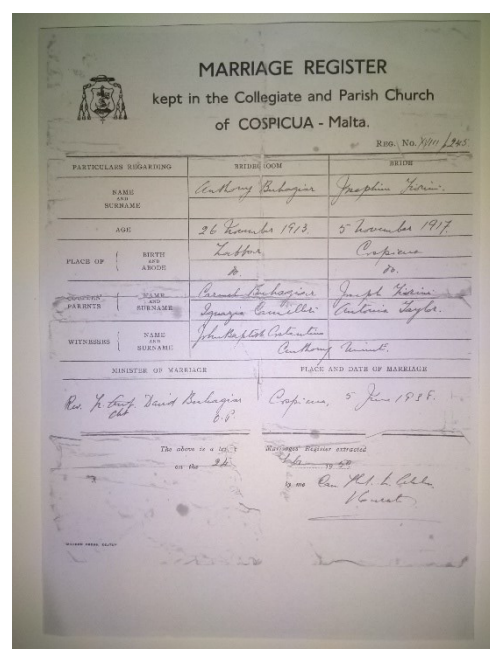 MARRIAGE REGISTER
kept in the Collegiate and Parish Church
of COSPICUA - Malta.
REG. No. XVIII/245
PARTICULARS REGARDING BRIDEGROOM BRIDE
NAME AND SURNAME Anthony Buhagiar Josephine Fiorini.
AGE 26 November 1913. 5 November 1917.
PLACE OF BIRTH AND ABODE Zabbar Cospicua
do. do.
PARENTS NAME AND SURNAME Carmel Buhagiar Joseph Fiorini
Camilleri Antonia Taylor.
WITNESSES NAME AND SURNAME John Baptist
Anthony
MINISTER OF MARRIAGE PLACE AND DATE OF MARRIAGE
Rev. David Buhagiar Cospicua, 5 June
O.P.
The above is a Marriages Register extracted
on the 24 19
by me Can.